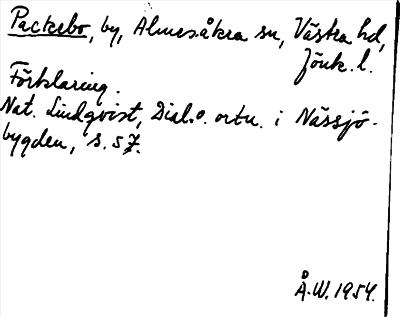 Packebo, by, Almesåkra sn, Västra hd,
Jönk. l.
Förklaring.
Nat. Lindqvist, Dial. o. ortn. i Nässjö-
bygden, s. 57.
Å.W. 1954.